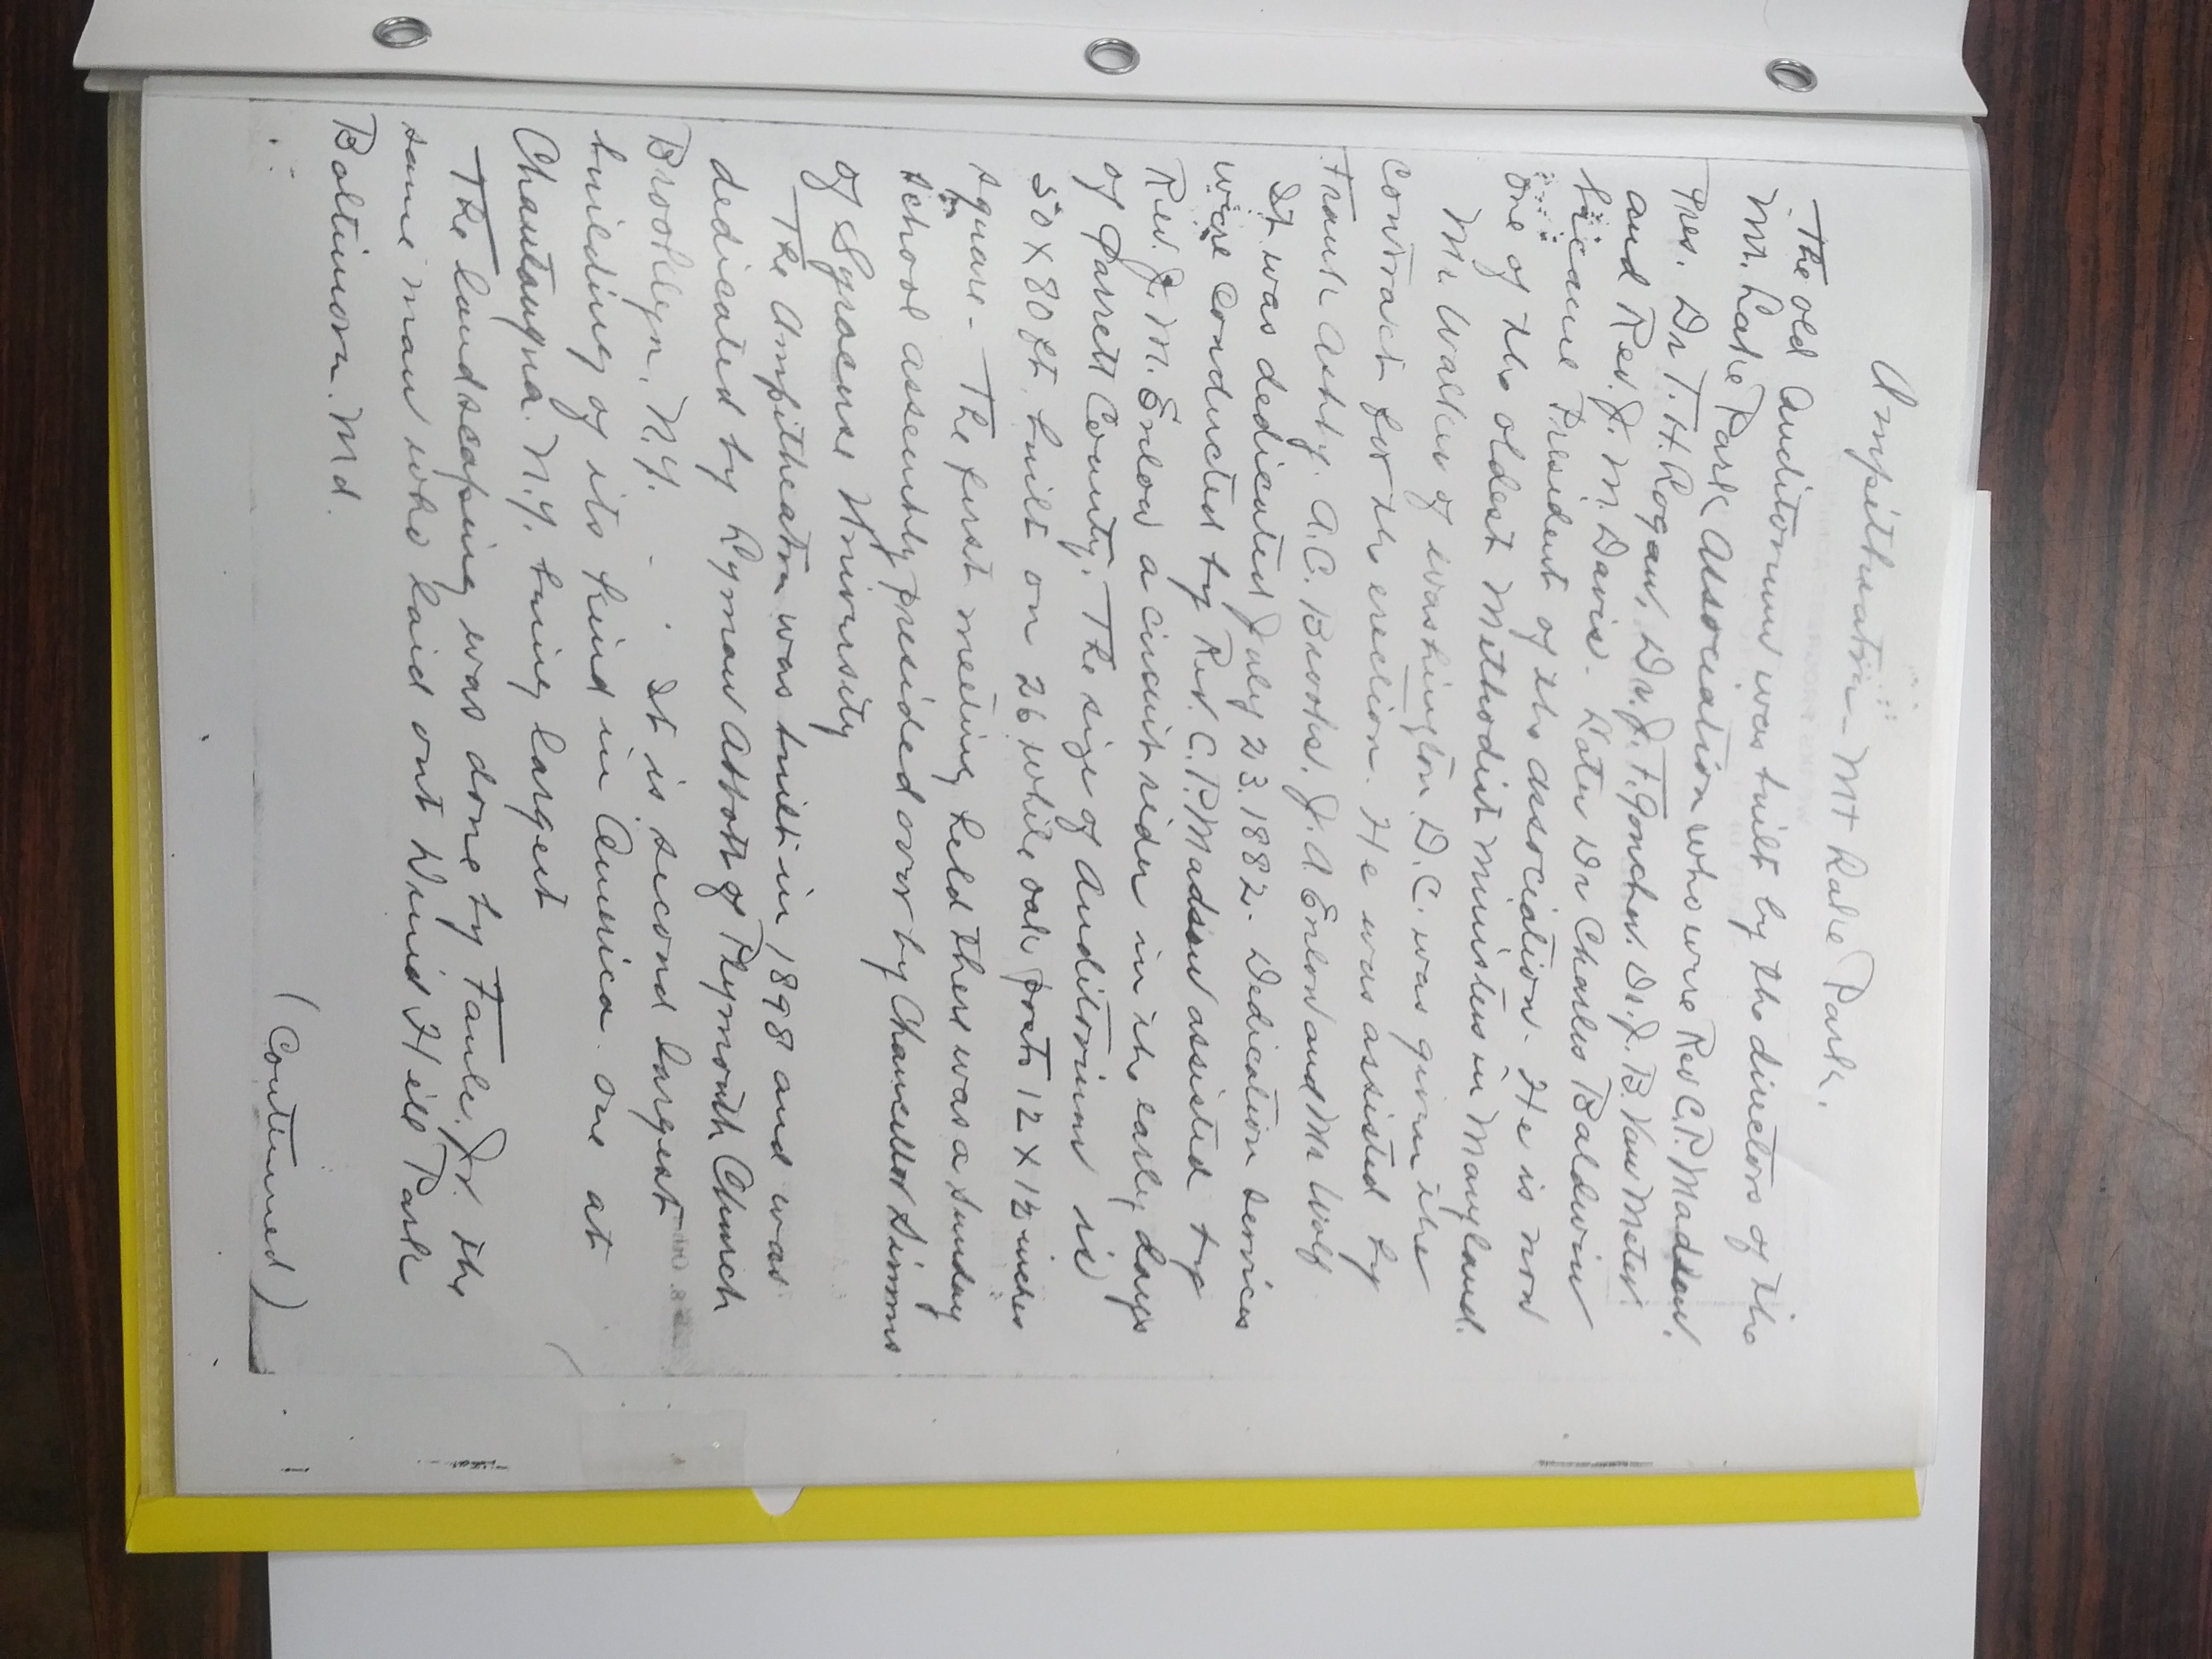 Ampitheatre - Mt Lake Park.
The old Auditorium was built by the directors of the
Mt. Lake Park Association who were Rev C.P. Madson,
Pres. Dr T. H. Logan, Dr. J. F. Goucher. Dr. J. B. Van Meter
and Rev. J. M. Davis. Later Dr Charles Baldwin
became President of the association. He is now
one of the oldest Methodist ministers in Maryland.
Mr. Walker of Washington D.C. was given the
contract for the erection. He was assisted by
Frank Ashby. A.C. Brooks, J. A. Enlow and Mr Wolf
It was dedicated July 23. 1882. Dedication services
were conducted by Rev. C. P. Madson assisted by
Rev. J. M. Enlow a circuit rider in the early days
of Garrett County. The size of Auditorium is
50 X 80 ft built on 26 white oak posts 12 X 12 inches
square - The first meeting held there was a Sunday
School assembly presided over by Chancellor Simms
of Syracuse University
The Ampitheatre was built in 1898 and was
dedicated by Lyman Abbott of Plymouth Church
Brooklyn, N.Y. - It is second largest
building of its kind in America one at
Chautauqua. N.Y. being largest
The landscaping was done by Jr. the
same man who laid out Druid Hill Park
Baltimore. Md.
(Continued)